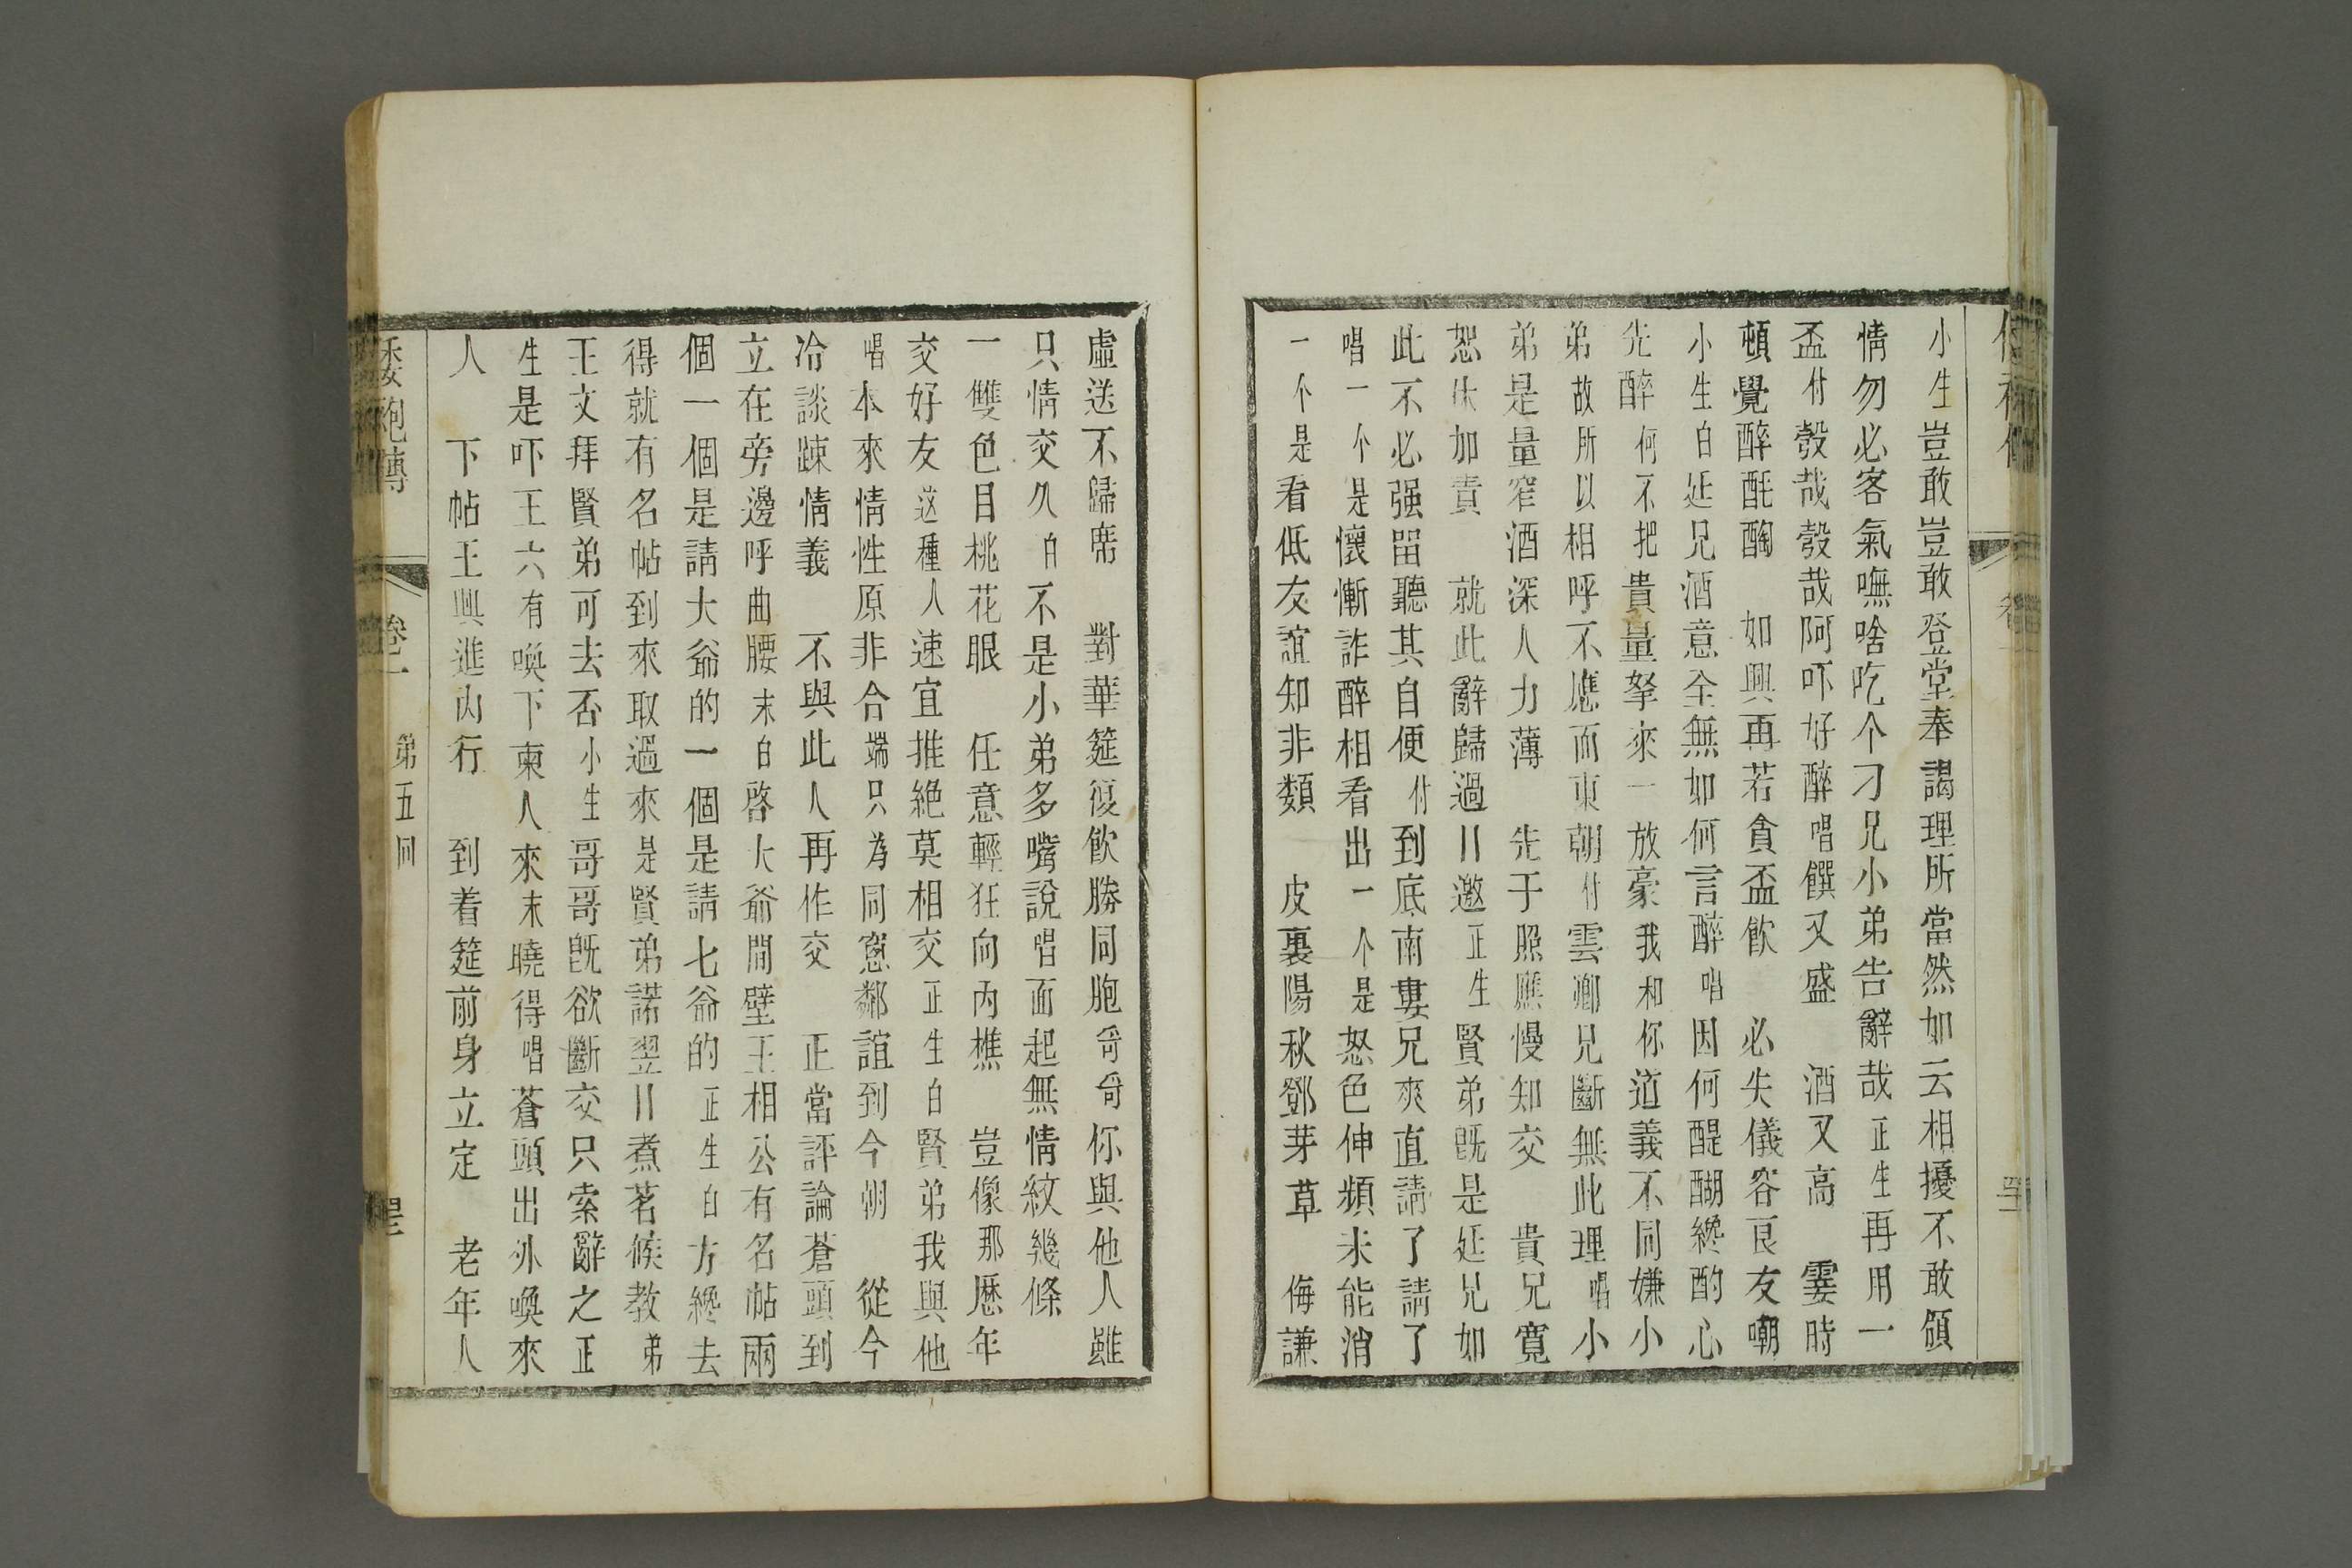 小生豈敢豈敢登堂奉謁理所當然如云相擾不敢領
情勿必客氣嘸啥吃个刁兄小弟告辭哉正生再用一
盃付彀哉彀哉阿吓好醉唱饌又盛　酒又高　霎時
頓覺醉酕醄　如興再若貪盃飲　必失儀容良友嘲
小生白延兄酒意全無如何言醉唱因何醒醐纔酌心
先醉何不把貴量拏來一放豪我和你道義不同嫌小
弟故所以相呼不應而東朝付雲卿兄斷無此理唱小
弟是量窄酒深人力薄　先于照應慢知交　貴兄寬
恕休加責　就此辭歸過〢邀正生賢弟旣是延兄如
此不必强留聽其自便付到底南婁兄爽直請了請了
唱一个是懷慚詐醉相看出一个是怒色伸頻未能消
一个是看低友誼知非類　皮裏陽秋鄧芽草　侮謙
虛送不歸席　對華筵復飲勝同胞哥哥你與他人雖
只情交久白不是小弟多嘴說唱面起無情紋幾條
一雙色目桃花眼　任意輕狂向內樵　豈像那歷年
交好友這種人速宜推絕莫相交正生白賢弟我與他
唱本來情性原非合端只為同窓鄰誼到今朝　從今
冷談踈情義　不與此人再作交　正當評論蒼頭到
立在旁邊呼曲腰末白啓大爺間壁王相公有名帖兩
個一個是請大爺的一個是請七爺的正生白方纔去
得就有名帖到來取過來是賢弟諾翌〢煮茗候教弟
王文拜賢弟可去否小生哥哥旣欲斷交只索辭之正
生是吓王六有喚下柬人來末曉得唱蒼頭出外喚來
人　下帖王興進內行　到着筵前身立定　老年人
倭袍傳　卷一　第五回